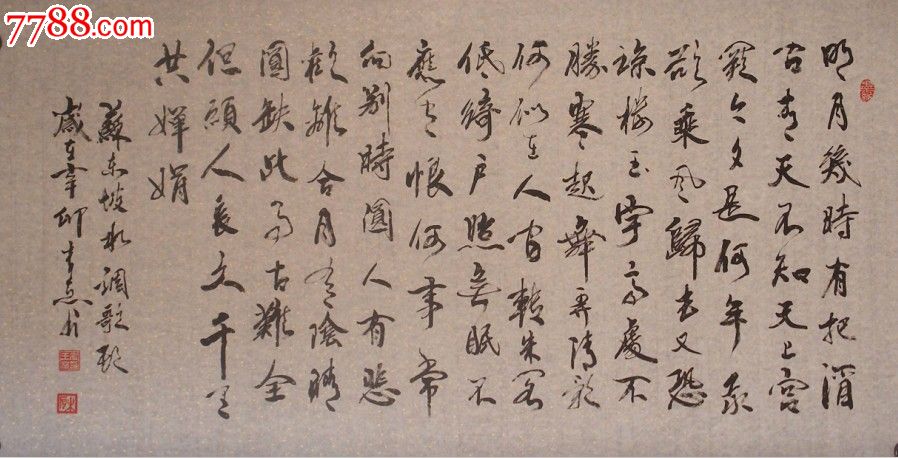 7788.com
明月幾時有把酒
問青天不知天上宮
闕今夕是何年我
欲乘風歸去又恐
瓊樓玉宇高處不
勝寒起舞弄清影
何似在人間轉朱閣
低綺戶照無眠不
應有恨何事常
向別時圓人有悲
歡離合月有陰晴
圓缺此事古難全
但願人長久千里
共嬋娟
蘇東坡水調歌頭
歲在辛卯